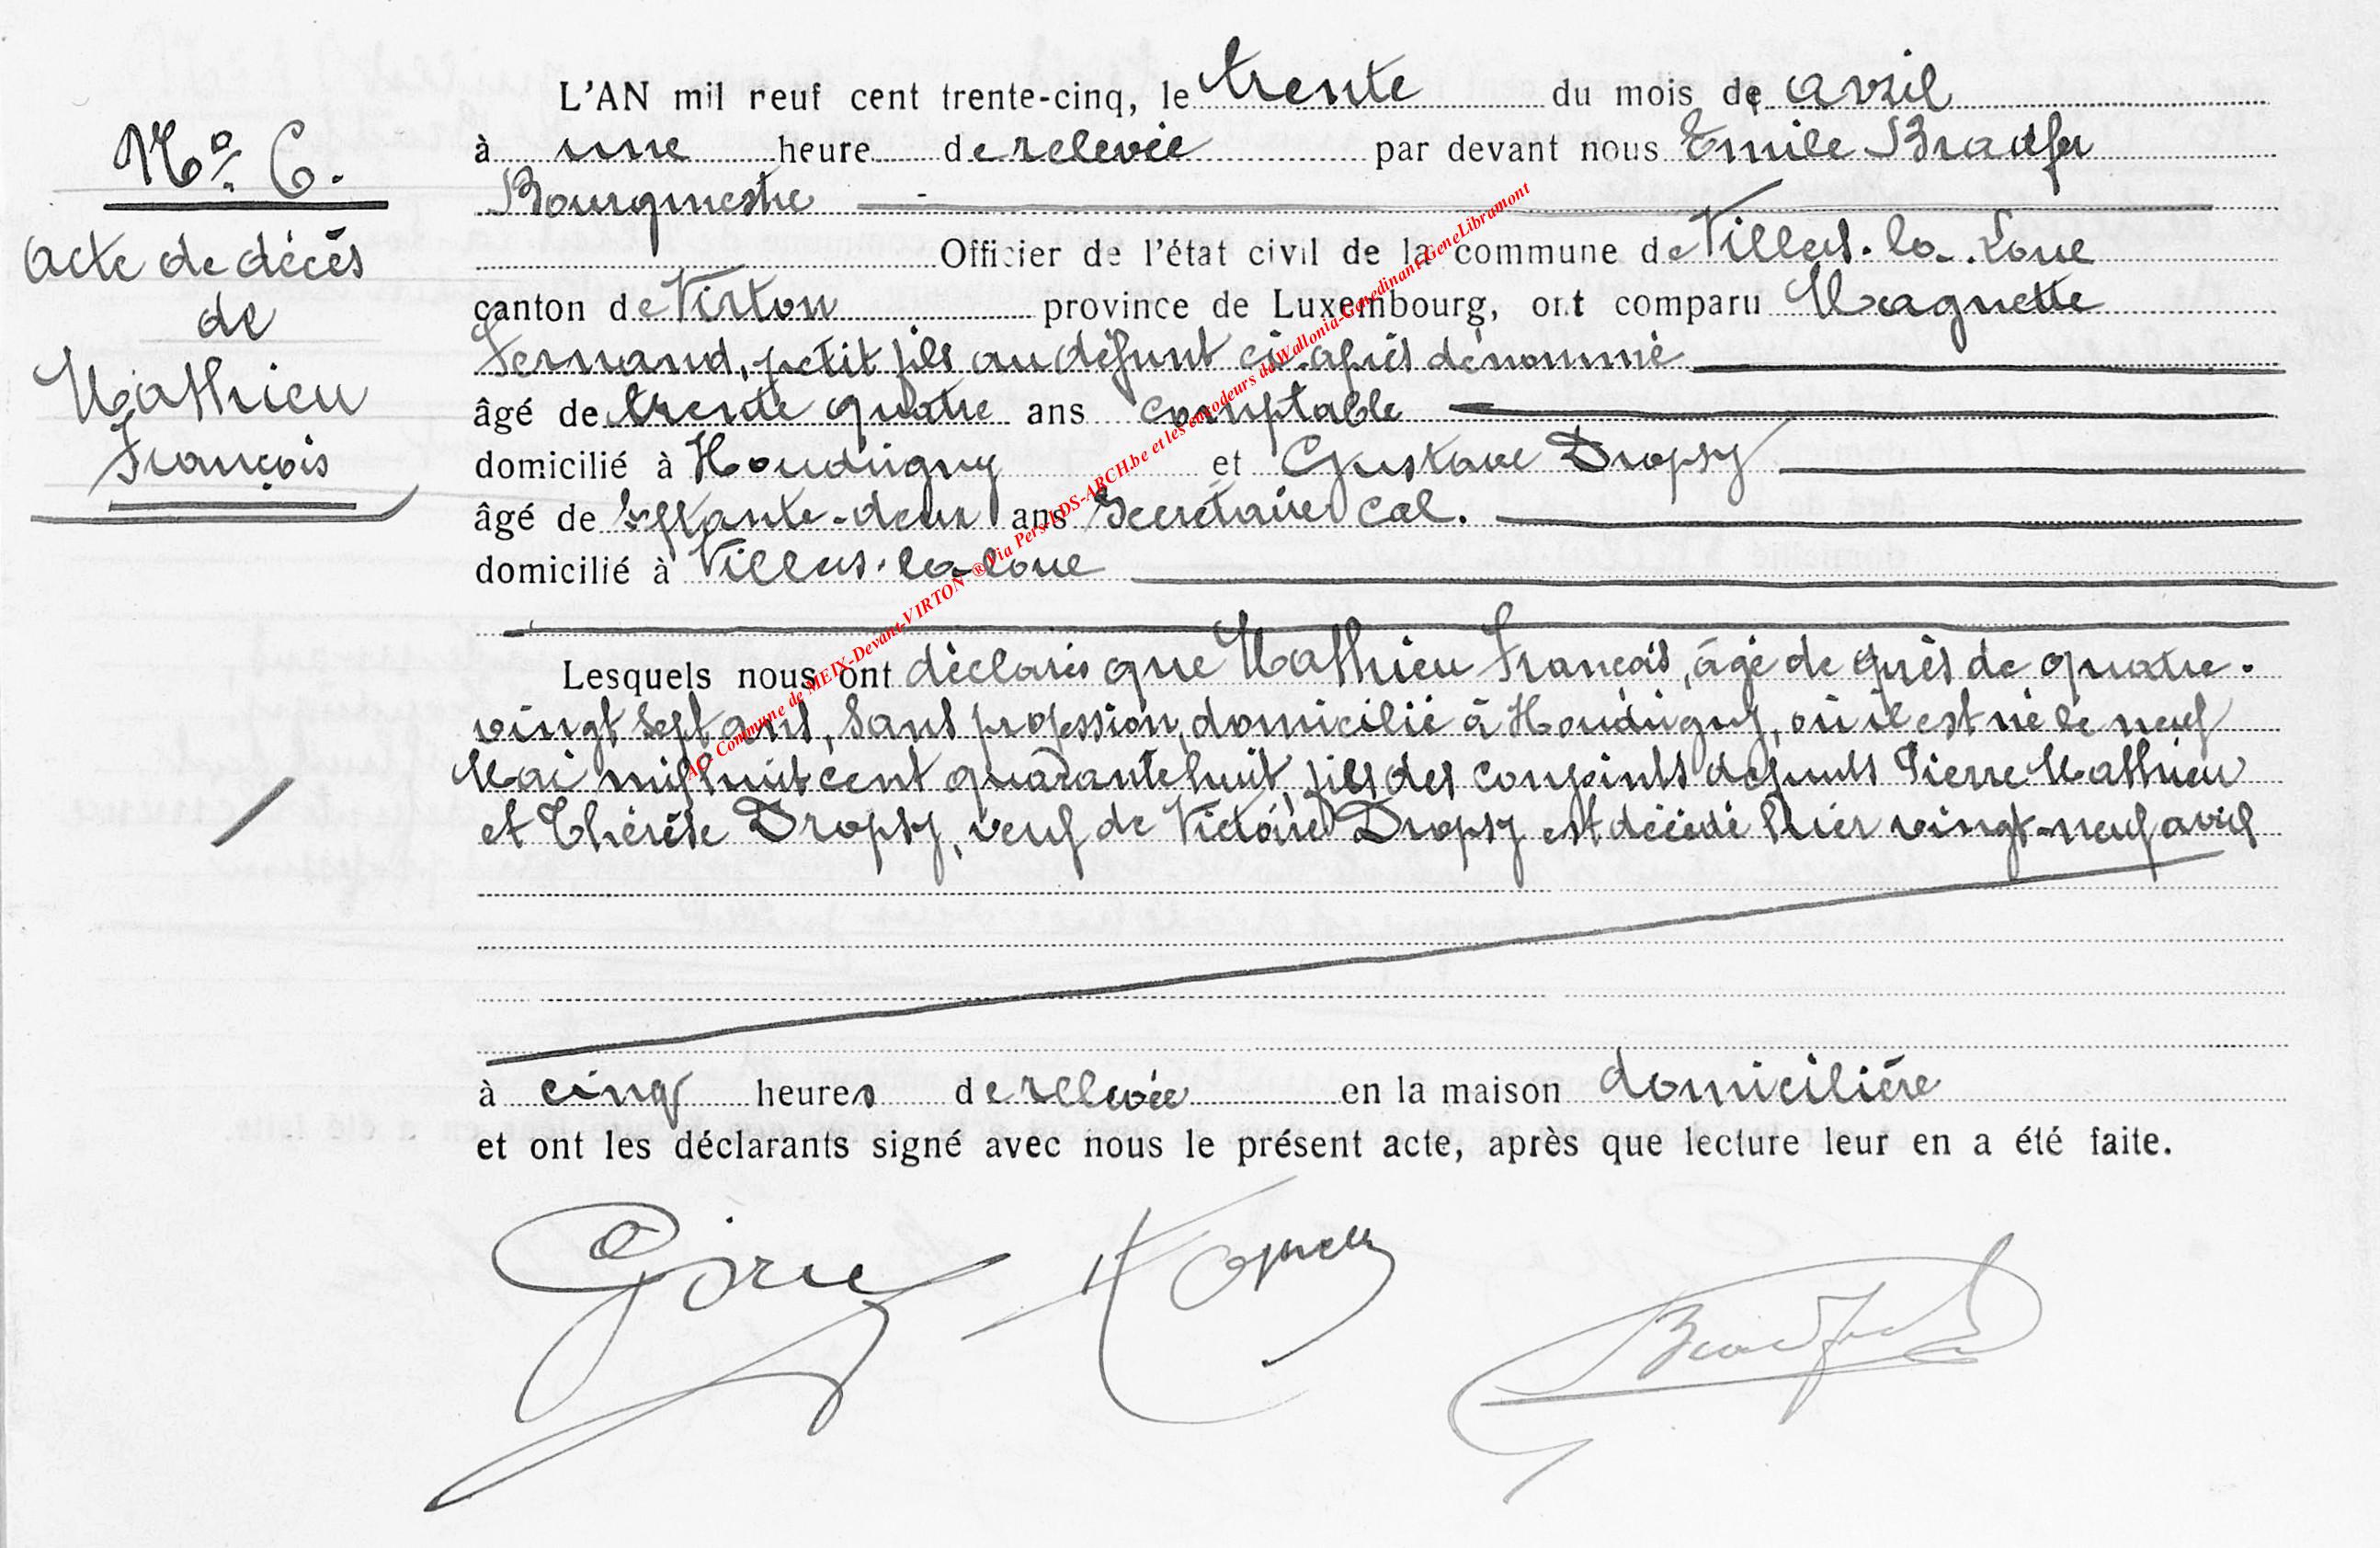 N° 6.
Acte de décès
de
Mathieu
François
L'AN mil neuf cent trente-cinq, le trente du mois de avril
à une heure de relevée par devant nous Emile Bradfer
Bourgmestre
Officier de l'état civil de la commune de Villers-la-Loue
canton de Virton province de Luxembourg, ont comparu Magnette
Fernand, petit fils au défunt ci-après dénommé
âgé de trente quatre ans comptable
domicilié à Houdrigny et Gustave Dropsy
âgé de septante-deux ans Secrétaire cal.
domicilié à Villers-la-Loue
Lesquels nous ont déclaré que Mathieu François, âgé de près de quatre-
vingt sept ans, sans profession, domicilié à Houdrigny, où il est né le neuf
Mai mil huit cent quarante huit, fils des conjoints défunts Pierre Mathieu
et Thérèse Dropsy, veuf de Victoire Dropsy est décédé hier vingt-neuf avril
à cinq heures de relevée en la maison domicilière
et ont les déclarants signé avec nous le présent acte, après que lecture leur en a été faite.
AC: Commune de MEIX-Devant-VIRTON ® Via Pers-LDS-ARCH.be et les encodeurs de Wallonia-Genedinant-GeneLibramont